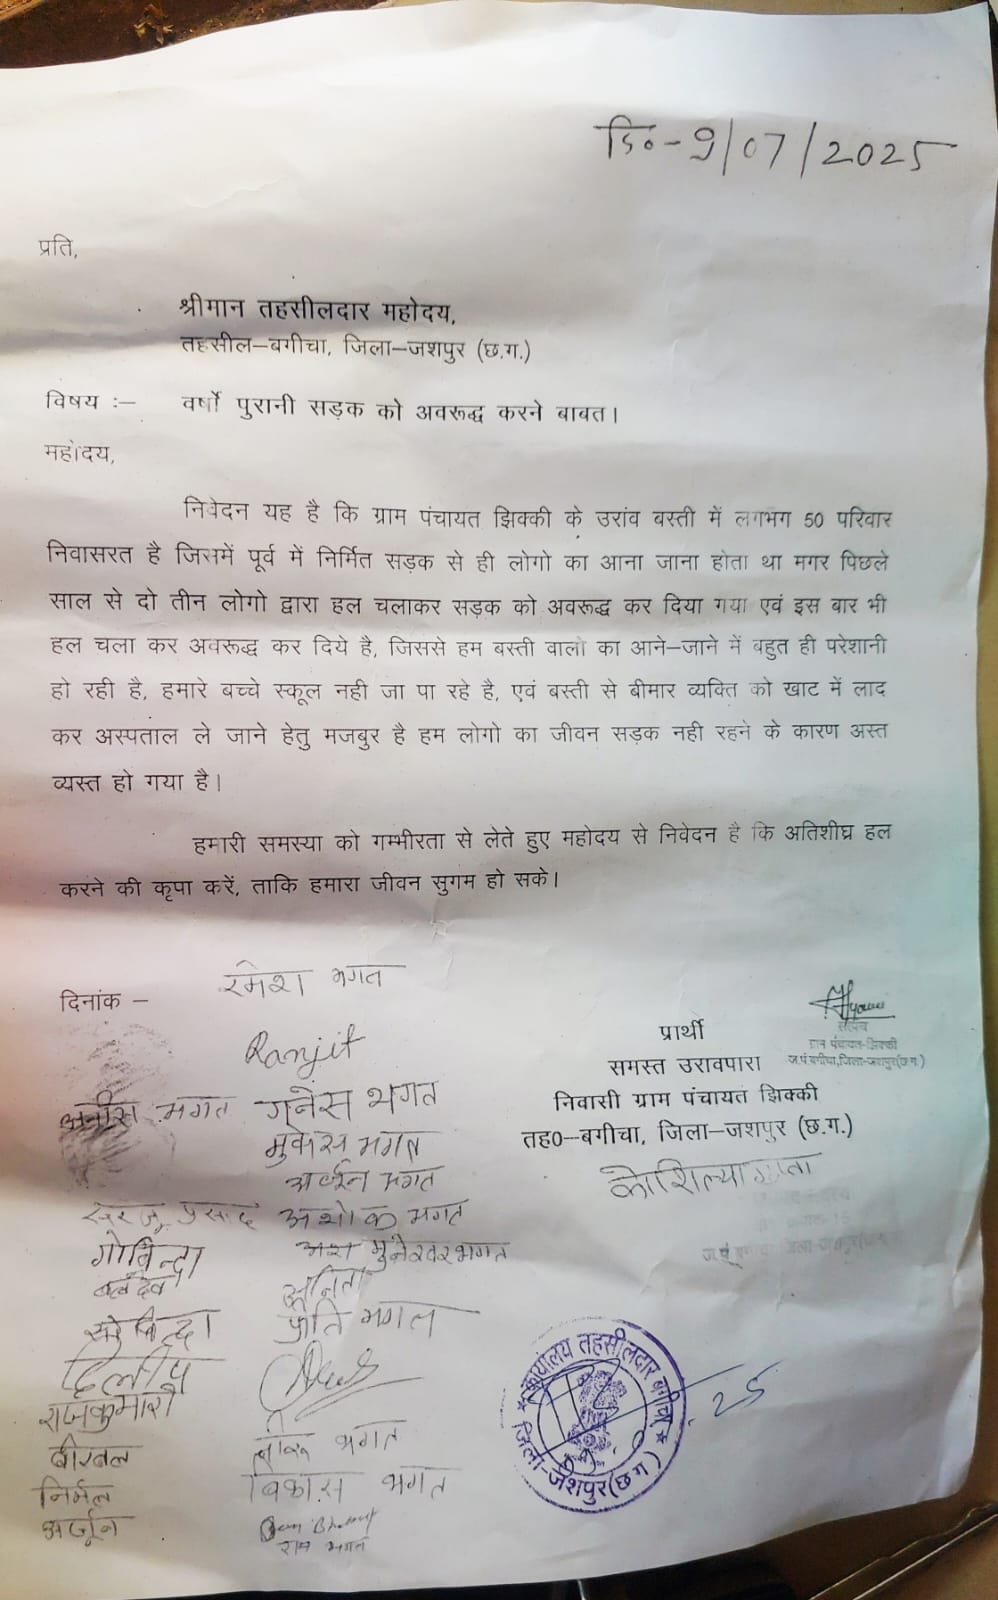 दि०-9/07/2025
प्रति,
श्रीमान तहसीलदार महोदय,
तहसील–बगीचा, जिला–जशपुर (छ.ग.)
विषय :– वर्षो पुरानी सड़क को अवरूद्ध करने बाबत।
महोदय,
निवेदन यह है कि ग्राम पंचायत झिक्की के उरांव बस्ती में लगभग 50 परिवार
निवासरत है जिसमें पूर्व में निर्मित सड़क से ही लोगो का आना जाना होता था मगर पिछले
साल से दो तीन लोगो द्वारा हल चलाकर सड़क को अवरूद्ध कर दिया गया एवं इस बार भी
हल चला कर अवरूद्ध कर दिये है, जिससे हम बस्ती वालो का आने–जाने में बहुत ही परेशानी
हो रही है, हमारे बच्चे स्कूल नही जा पा रहे है, एवं बस्ती से बीमार व्यक्ति को खाट में लाद
कर अस्पताल ले जाने हेतु मजबुर है हम लोगो का जीवन सड़क नही रहने के कारण अस्त
व्यस्त हो गया है।
हमारी समस्या को गम्भीरता से लेते हुए महोदय से निवेदन है कि अतिशीघ्र हल
करने की कृपा करें, ताकि हमारा जीवन सुगम हो सके।
दिनांक –
रमेश भगत
Ranjit
सचिव
ग्राम पंचायत-झिक्की
ज.पं.बगीचा,जिला-जशपुर(छ.ग.)
प्रार्थी
समस्त उरावपारा
निवासी ग्राम पंचायत झिक्की
तह0–बगीचा, जिला–जशपुर (छ.ग.)
भगत गनेस भगत
मुकेस भगत
अर्जुन भगत
प्रसाद अशोक भगत
गोबिन्दा मुनेस्वर भगत
बलदेव अनिता
प्रिति भगत
दिलीप
राजकुमारी
बीरबल भगत
निर्मल विकास भगत
अर्जून
राम भगत
कार्यालय तहसीलदार बगीचा
जिला-जशपुर(छ.ग)
25